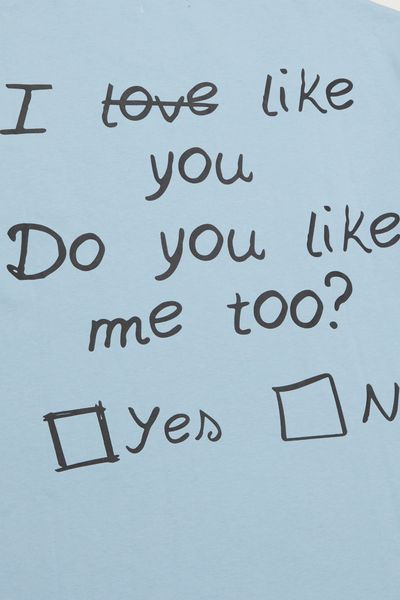 I love like
you
Do you like
me too?
Yes N